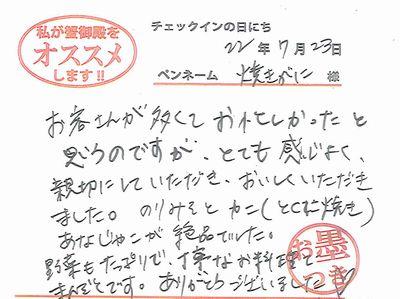 私が蟹御殿を
オススメ
します!!
チェックインの日にち
22年7月23日
ペンネーム 焼きがに 様
お客さんが多くて お忙しかったと
思うのですが、とても感じよく、
親切にしていただき、おいしくいただき
ました。のりみそとカニ(とくに焼き)
あなじゃこが絶品でした。
野菜もたっぷりで、丁寧なお料理で
まんぞくです。ありがとうございました
お墨つき